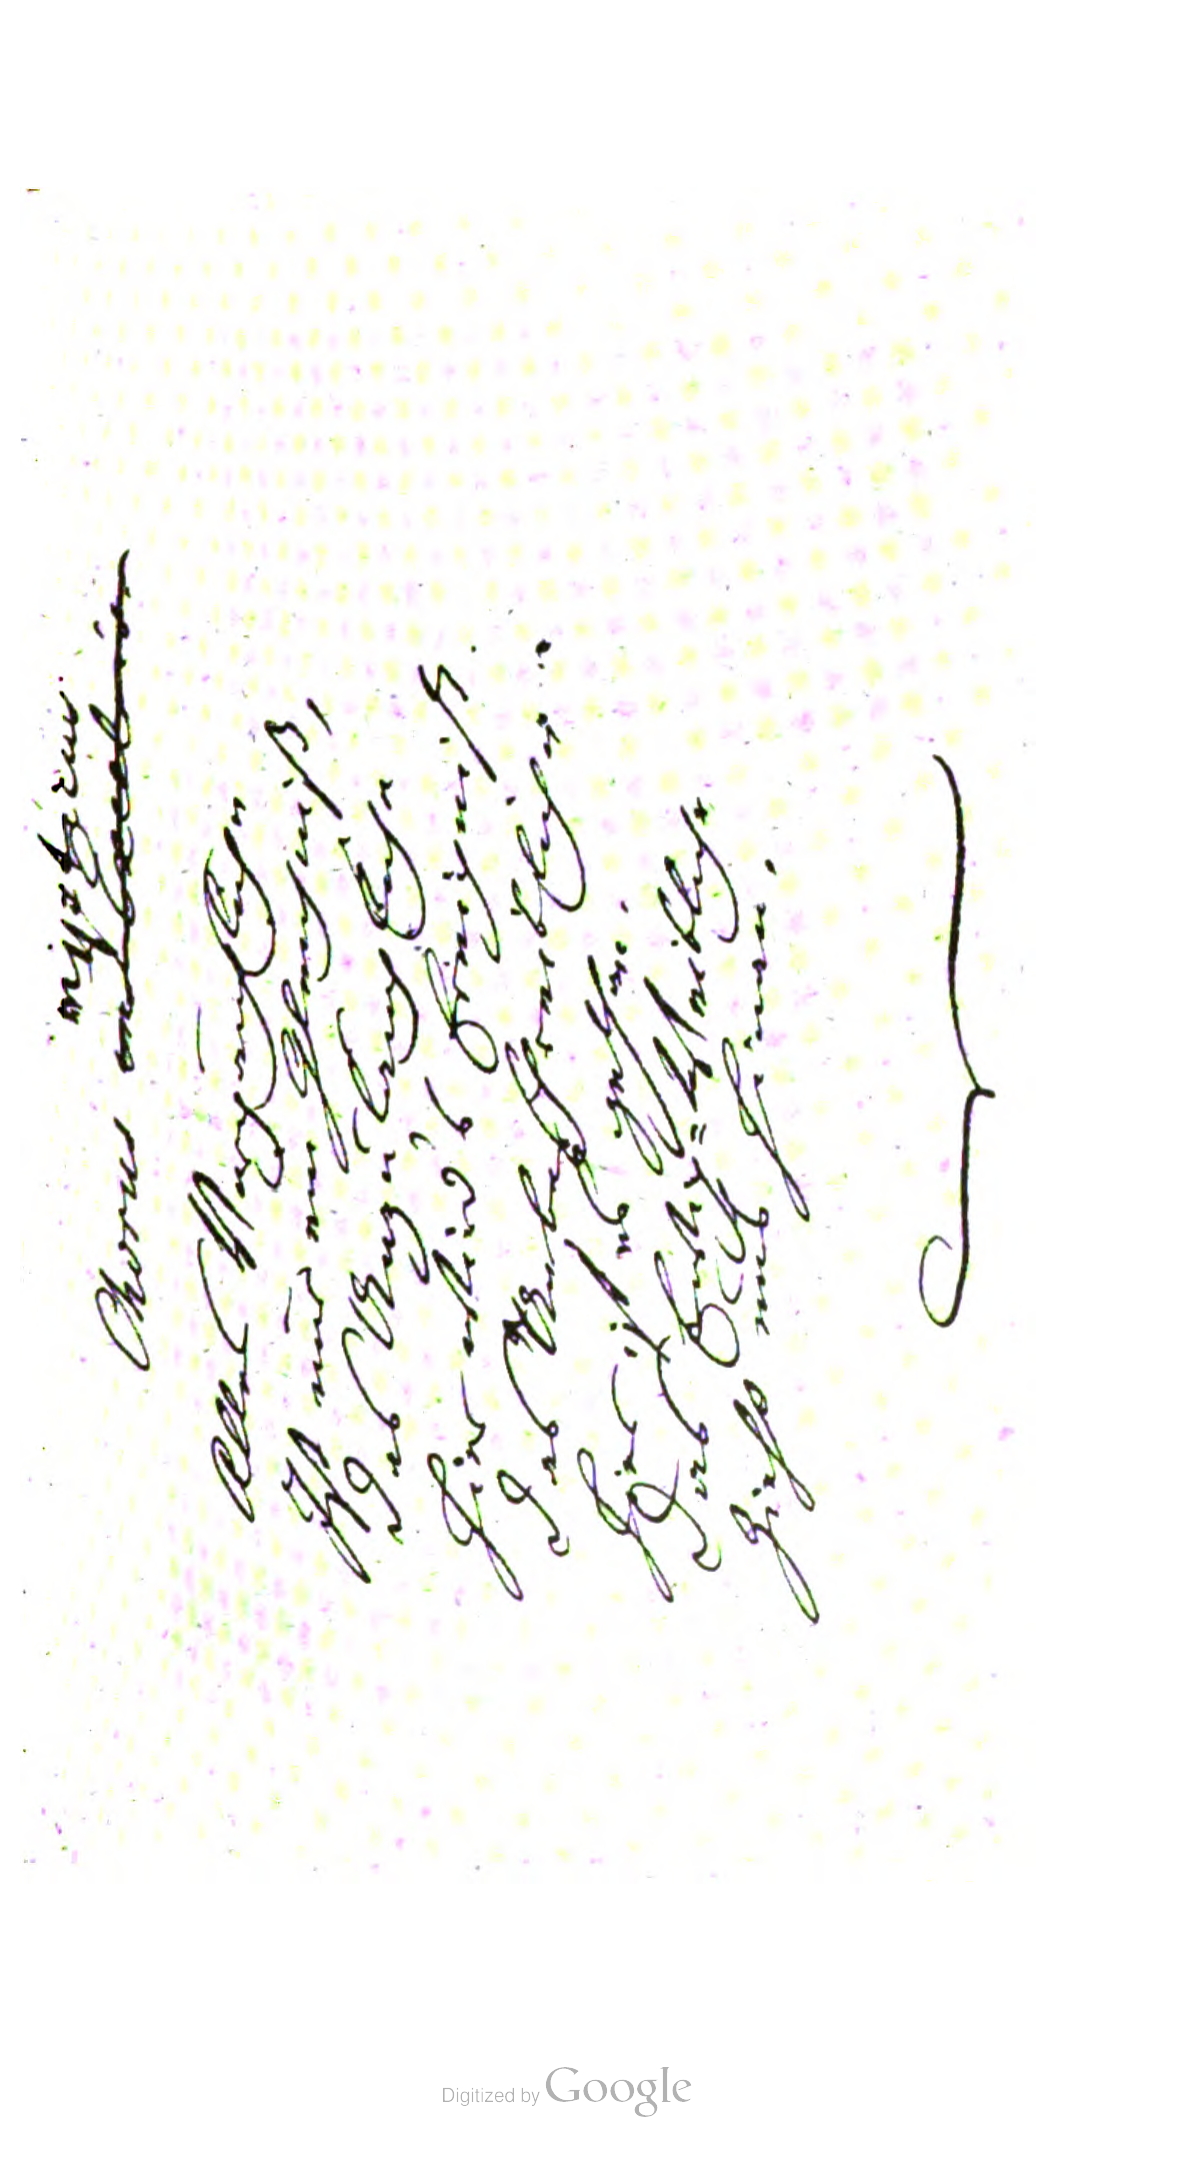 mysticus.
Chorus
Alles Vergängliche
Ist nur ein Gleichniß,
Das Unzulängliche
Hier wird's Ereigniß.
Das Unbeschreibliche
Hier ist es gethan.
Das Ewig=Weibliche
Zieht uns hinan.
Digitized by Google